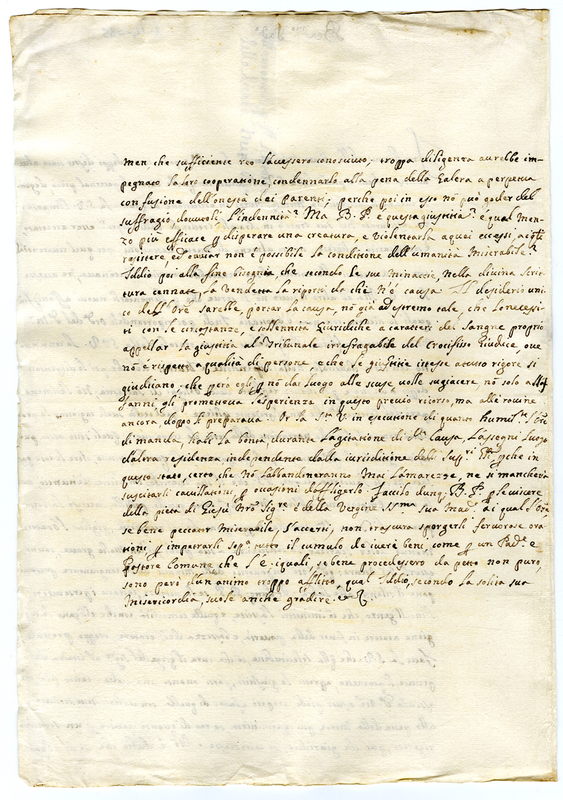 men che sufficiente reo l'havessero conosciuto; troppa diligenza aurebbe im-
pegnato la loro cooperatione, condennarlo alla pena della Galera a perpetua
confusione dell'onestà dei Parenti; perche poi in esso nõ può goder del
suffragio, dovutoli l'indennità. Ma B. P. e questa giustitia? e qual men-
zo più efficace per disperare una creatura, e violentarla a quei eccessi, a quali
resistere ed ovviar non è possibile la conditione dell'umanità miserabile?
Iddio poi alla fine bisogna, che secondo le sue minaccie, nella divina Scrit-
tura cennate, la Vendetta la riporti da chi n'è causa. Il desiderio uni-
co dell' Ore sarebbe, portar la causa, nõ già ad estremo tale, che lo necessi-
ti con le circostanze, e sollennità Giuridiche a caratteri del Sangue proprio
appellar la giustitia al Tribunale irrefragabile del Crocifisso Giudice, ove
nõ è rispetto a qualità di persone e che le giustitie istesse a tutto rigore si
giudicano; che però egli per nõ dar luogo alle scuse volle sugiacere nõ solo alli
danni, gli prometteva l'esperienza in questo previo ricorso, ma alle rovine
ancora, doppo li preparava. Or la Stà V. in esecutione di quanto humilte l'Ore
dimanda, habi la bontà, durante l'agitatione di sua Causa, l'assegni luogo
d'altra residenza independente dalla iuriditione delli Suppti Pri perche in
questo stato, certo, che nõ l'abbandoneranno mai l'amarezze, ne si mancherà
suscitarli cavillationi, per occasioni d'affligerlo. Faccilo dunq; B. P. per le viscere
della pietà di Giesù Nro Sigre e della Vergine SSma sua Made, ai quali l'Ore
se bene peccator miserabile, s'accerti, non trascura sporgerli fervorose ora-
tioni per impetrarli sopra tutto il cumulo de i veri beni, come per un Pade e
Pastore Comune che l'è: i quali, se bene procedessero da petto non puro,
sono però d'un animo troppo afflitto, qual Iddio, secondo la solita sua
Misericordia, suole anche gradire. &c.